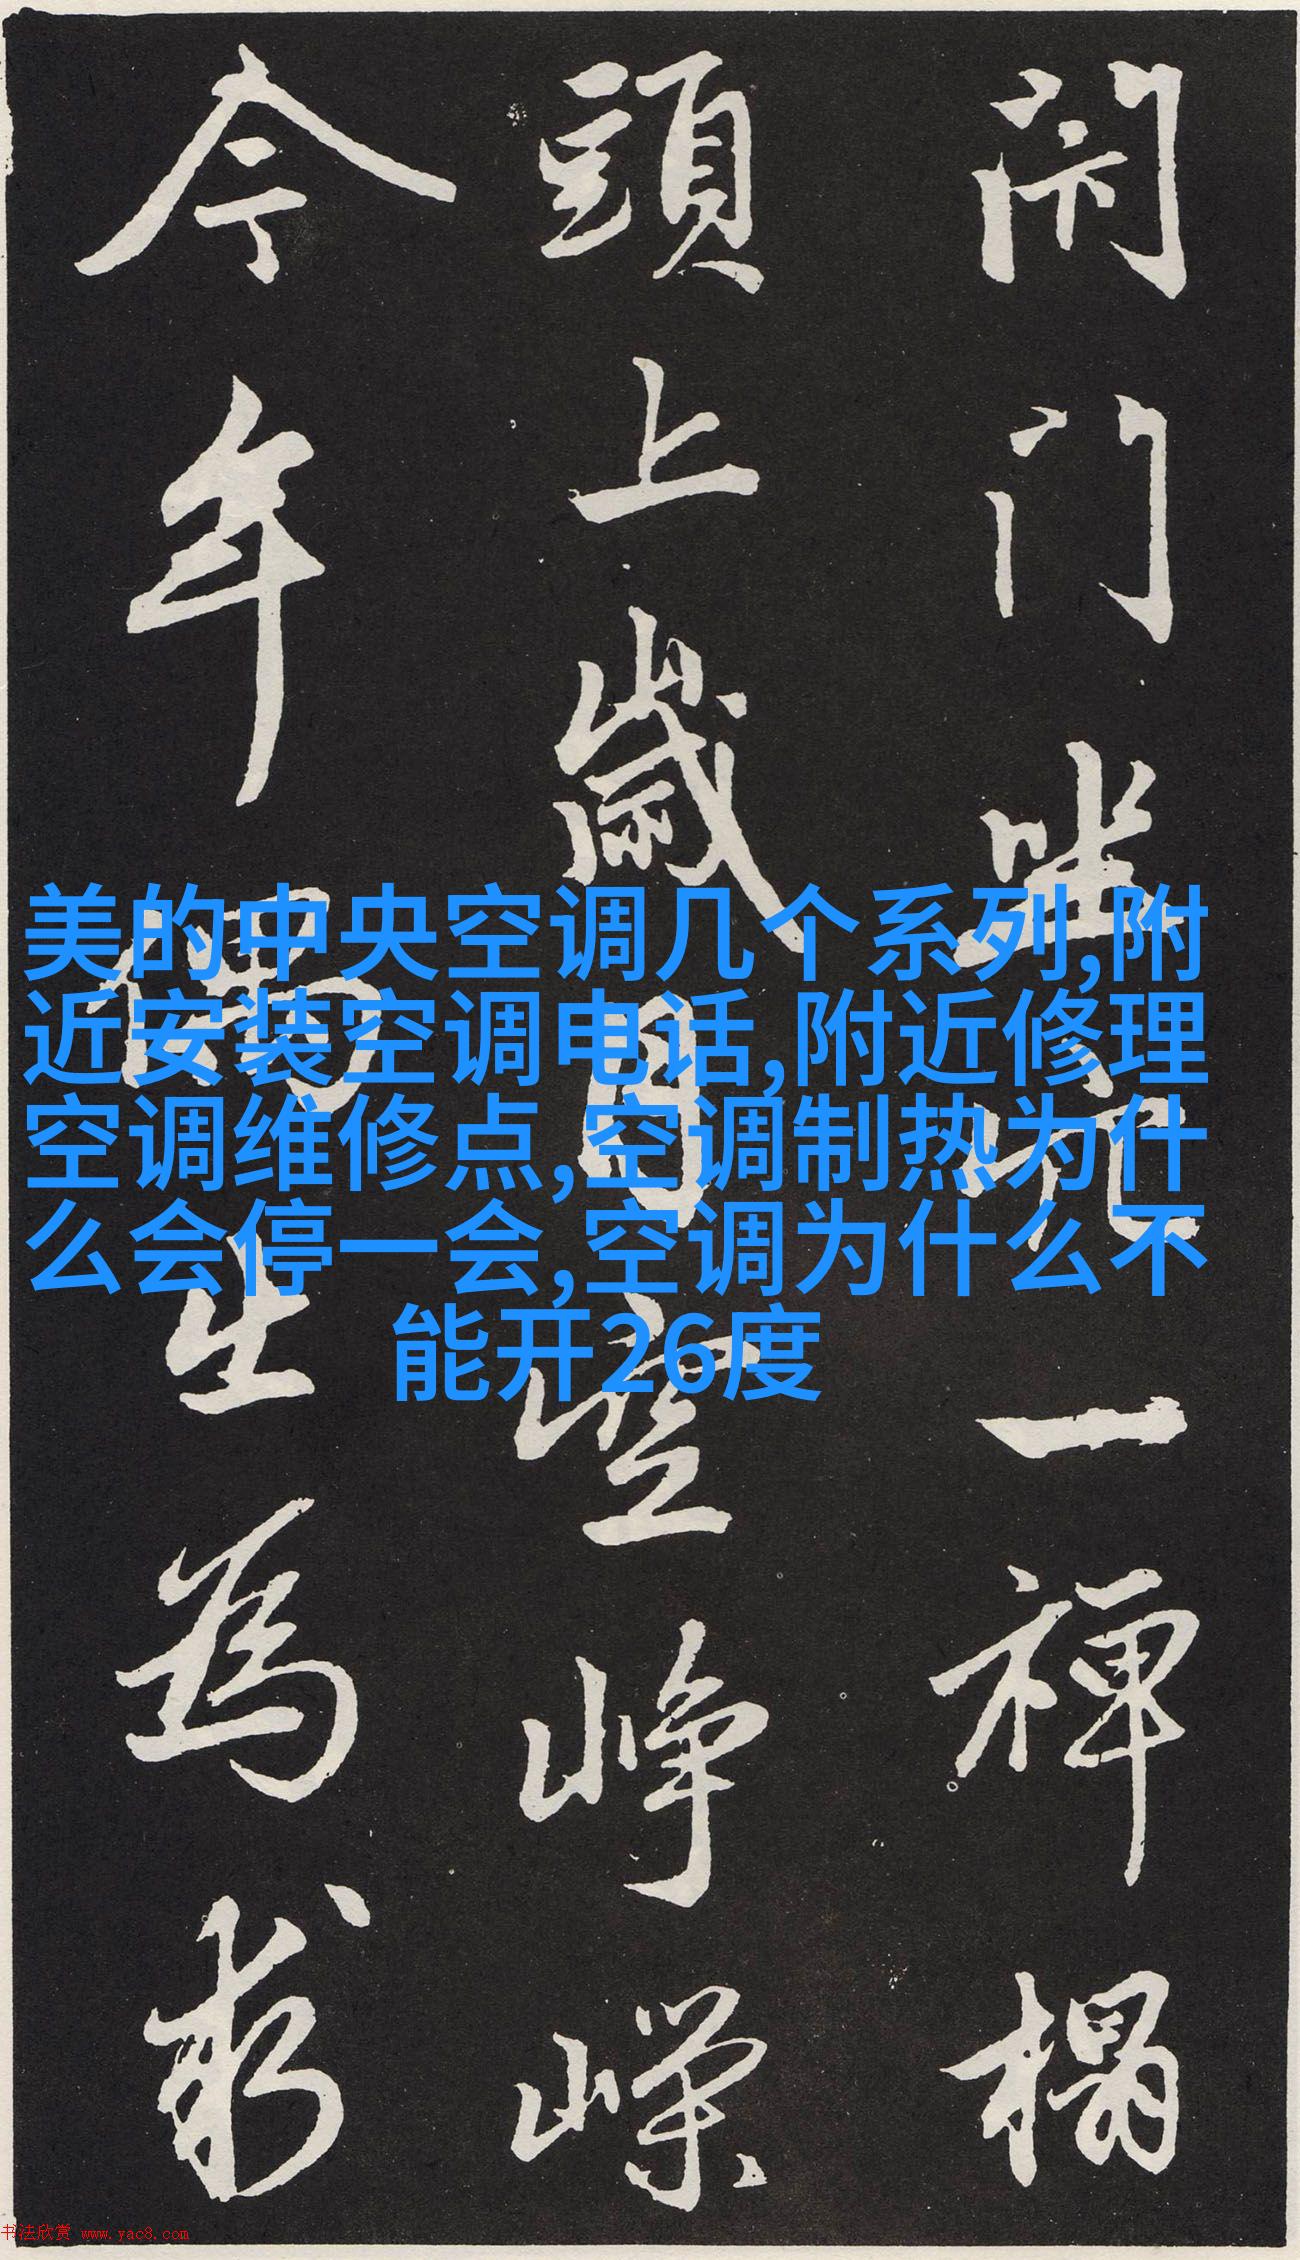 闭门坐穴一禅榻
頭上歲月空峥嶸
今年偶出為求
美的中央空调几个系列,附
近安装空调电话,附近修理
空调维修点,空调制热为什
么会停一会,空调为什么不
能开26度
书法欣赏 www.yac8.com